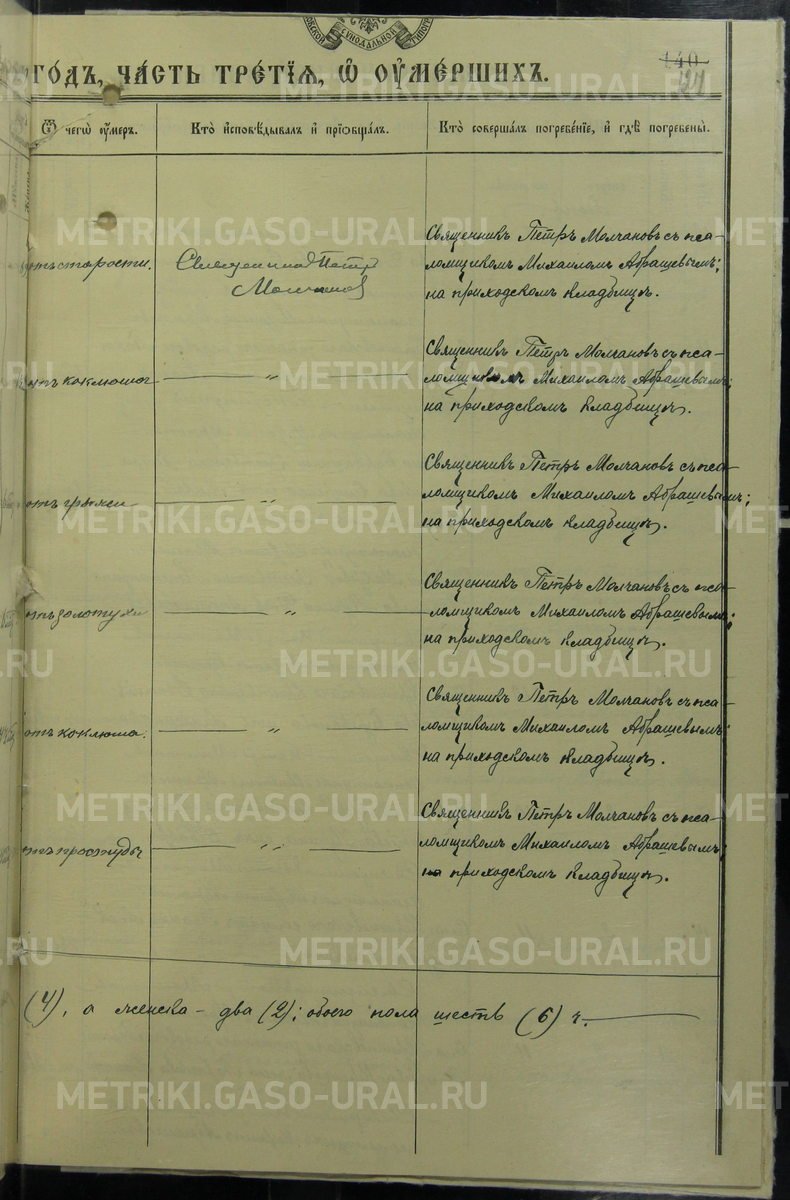 СѴНОДАЛЬНОЙ
140
годъ, ча́сть тре́тїѧ, ѡ҆ ᲂу҆ме́ршихъ.
Ѿ чегѡ̀ ᲂу҆́меръ.
Кто̀ и҆сповѣ́дывалъ и҆ прїѻбща́лъ.
Кто̀ соверша́лъ погребе́нїе, и҆ гдѣ̀ погребены̀.
отъ старости.
Священникъ Петръ
Молчановъ
Священникъ Петръ Молчановъ съ пса-
ломщикомъ Михаиломъ Абрашевымъ;
на приходскомъ кладбищѣ.
отъ коклюша
— „ —
Священникъ Петръ Молчановъ съ пса-
ломщикомъ Михаиломъ Абрашевымъ;
на приходскомъ кладбищѣ.
отъ грыжи
— „ —
Священникъ Петръ Молчановъ съ пса-
ломщикомъ Михаиломъ Абрашевымъ;
на приходскомъ кладбищѣ.
отъ золотухи
— „ —
Священникъ Петръ Молчановъ съ пса-
ломщикомъ Михаиломъ Абрашевымъ;
на приходскомъ кладбищѣ.
отъ коклюша.
— „ —
Священникъ Петръ Молчановъ съ пса-
ломщикомъ Михаиломъ Абрашевымъ;
на приходскомъ кладбищѣ.
отъ простуды
— „ —
Священникъ Петръ Молчановъ съ пса-
ломщикомъ Михаиломъ Абрашевымъ;
на приходскомъ кладбищѣ.
(4), а женска - два (2); обоего пола шесть (6) ч.
METRIKI.GASO-URAL.RU